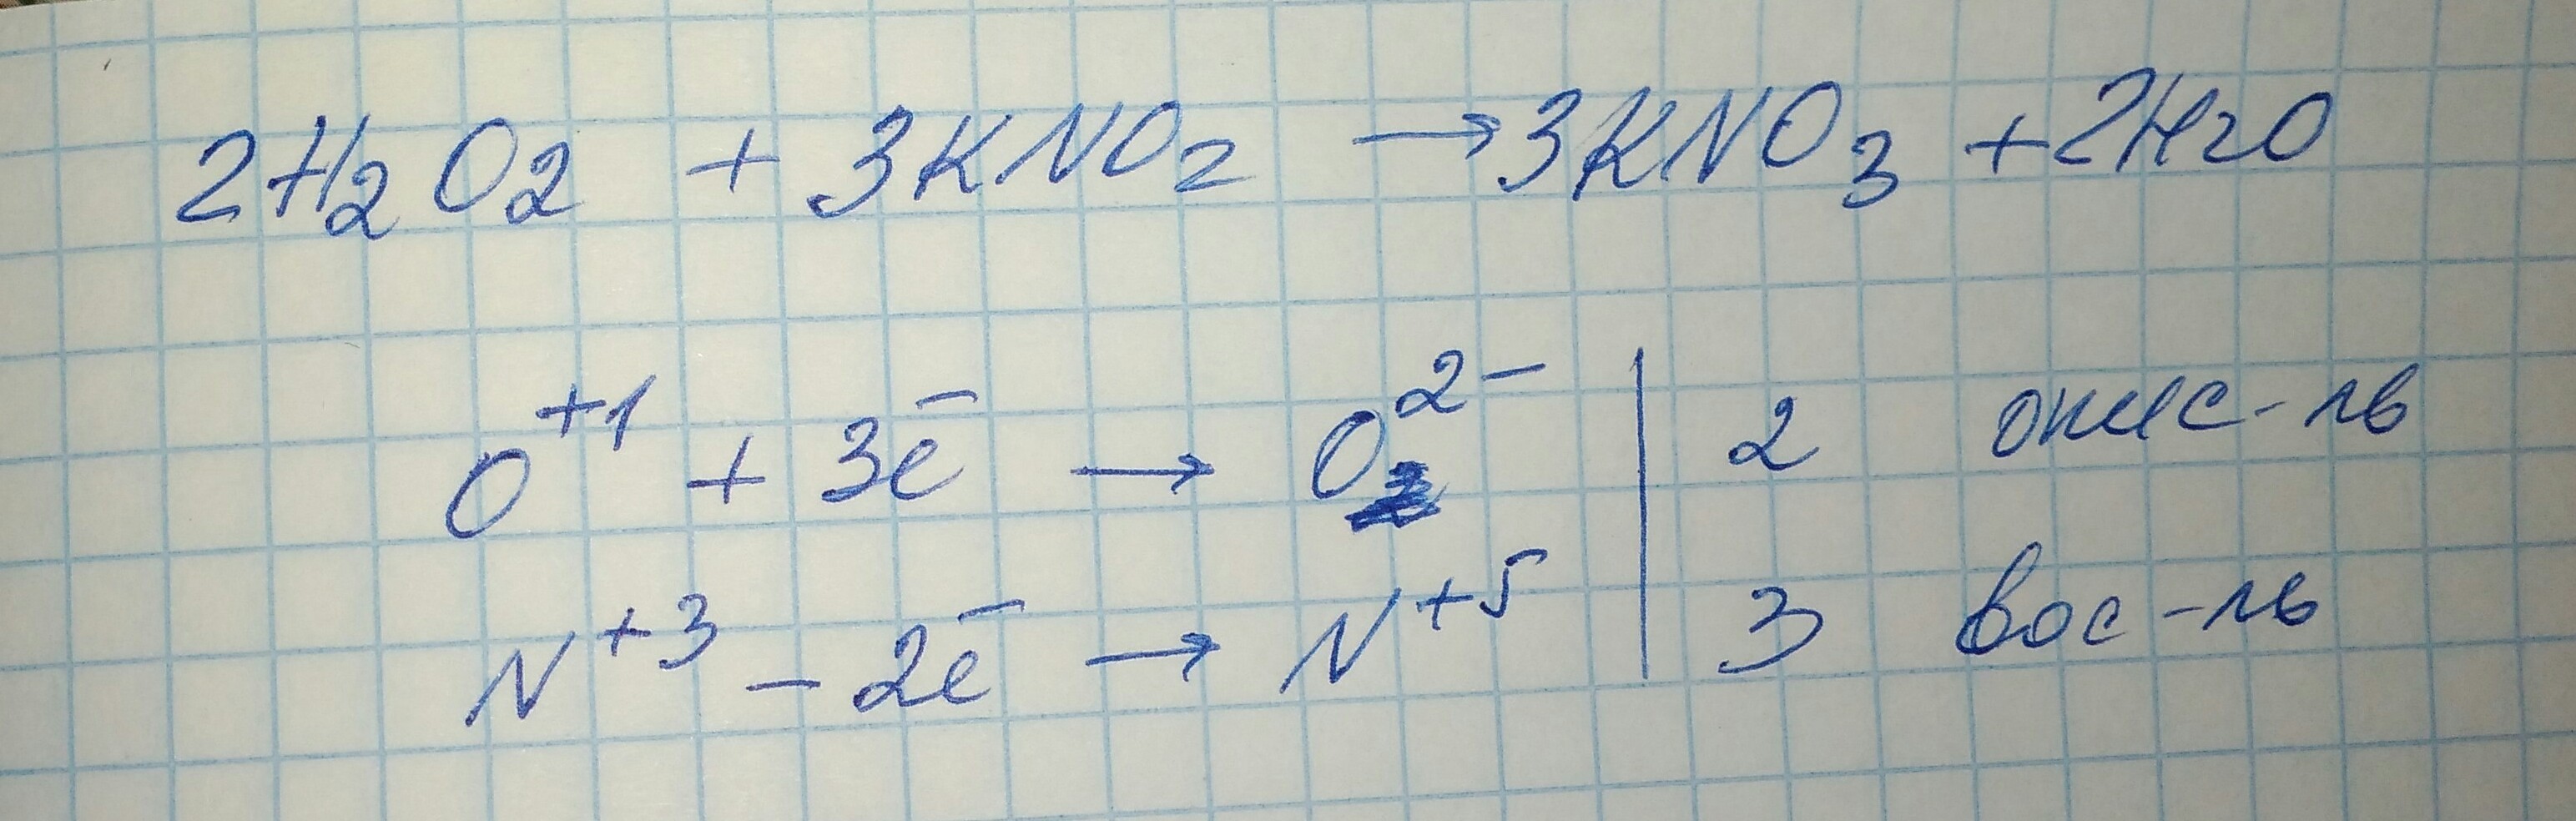 2H₂O₂ + 3KNO₂ → 3KNO₃ + 2H₂O
O⁺¹ + 3ē → O²⁻ | 2 окис-ль
N⁺³ - 2ē → N⁺⁵ | 3 вос-ль